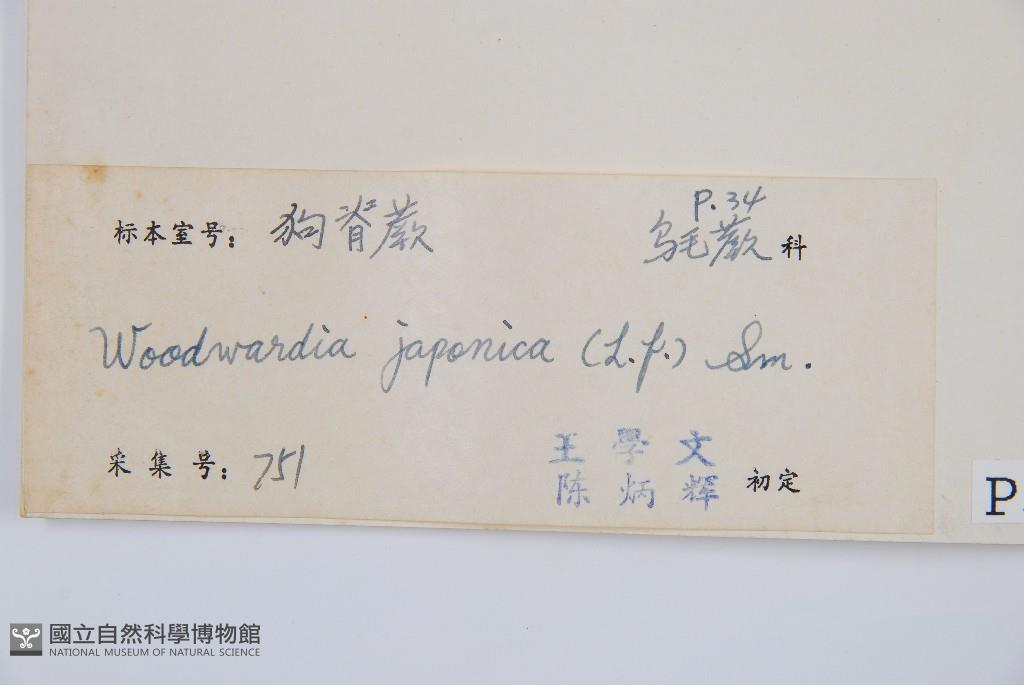 P.34
标本室号：狗脊蕨 乌毛蕨科
Woodwardia japonica (L.f.) Sm.
采集号：751
王學文
陈炳辉 初定
P
國立自然科學博物館
NATIONAL MUSEUM OF NATURAL SCIENCE